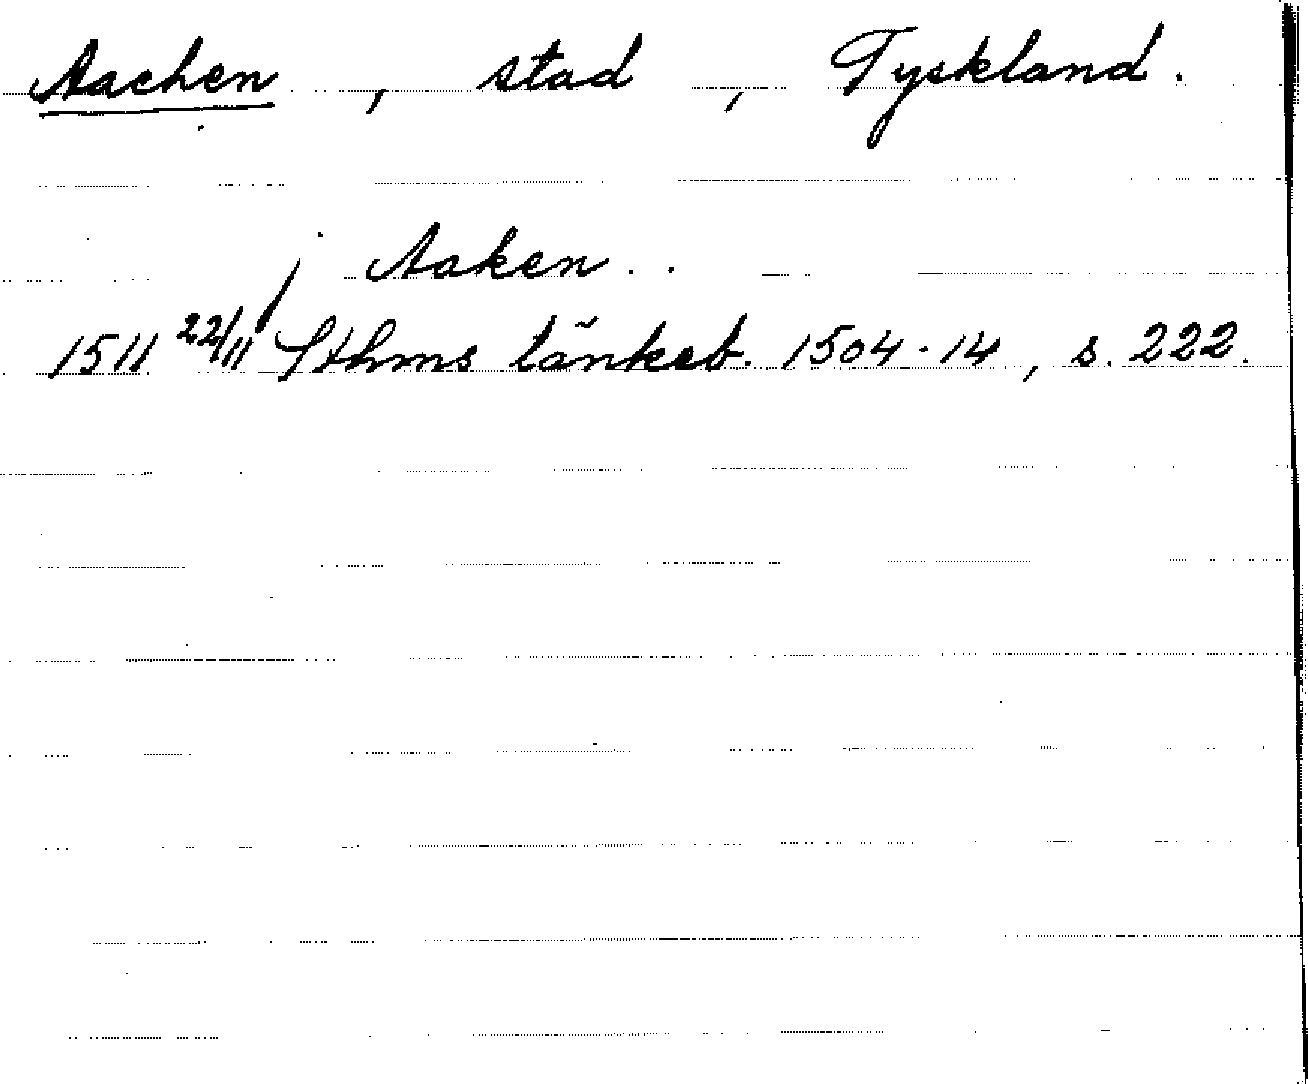 Aachen, stad, Tyskland.
j Aaken . .
1511 22/11 Sthms tänkeb. 1504-14, s. 222.